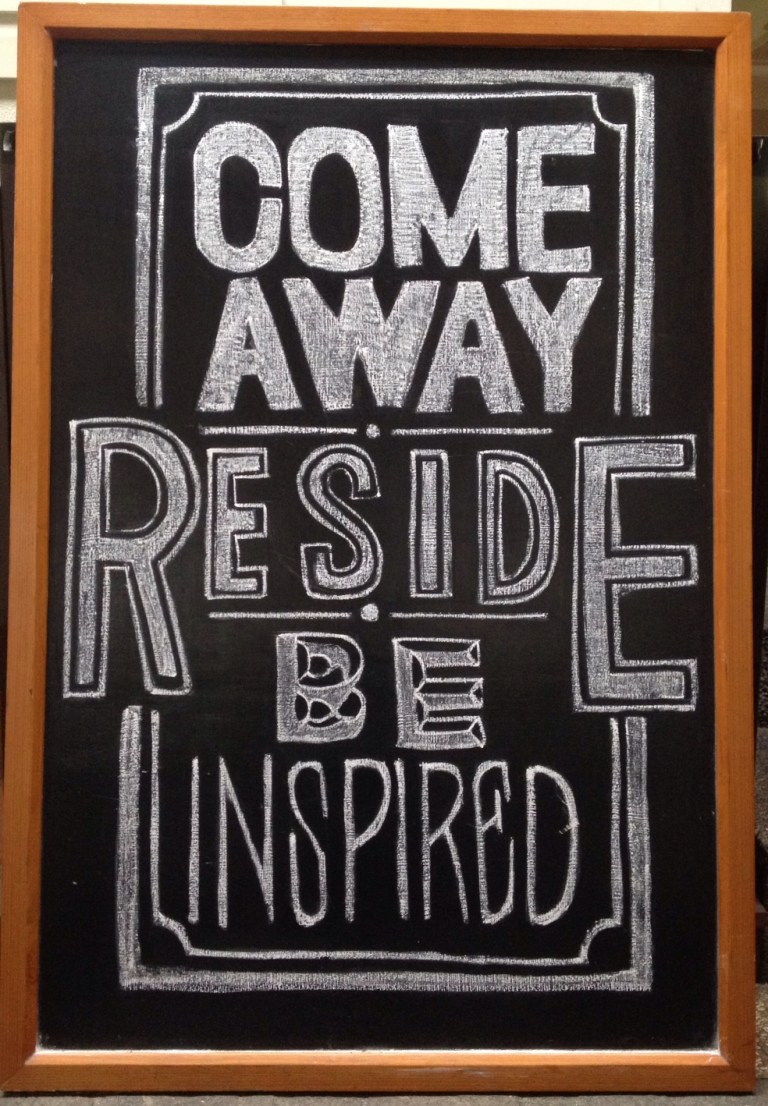 COME
AWAY
RESIDE
BE
INSPIRED